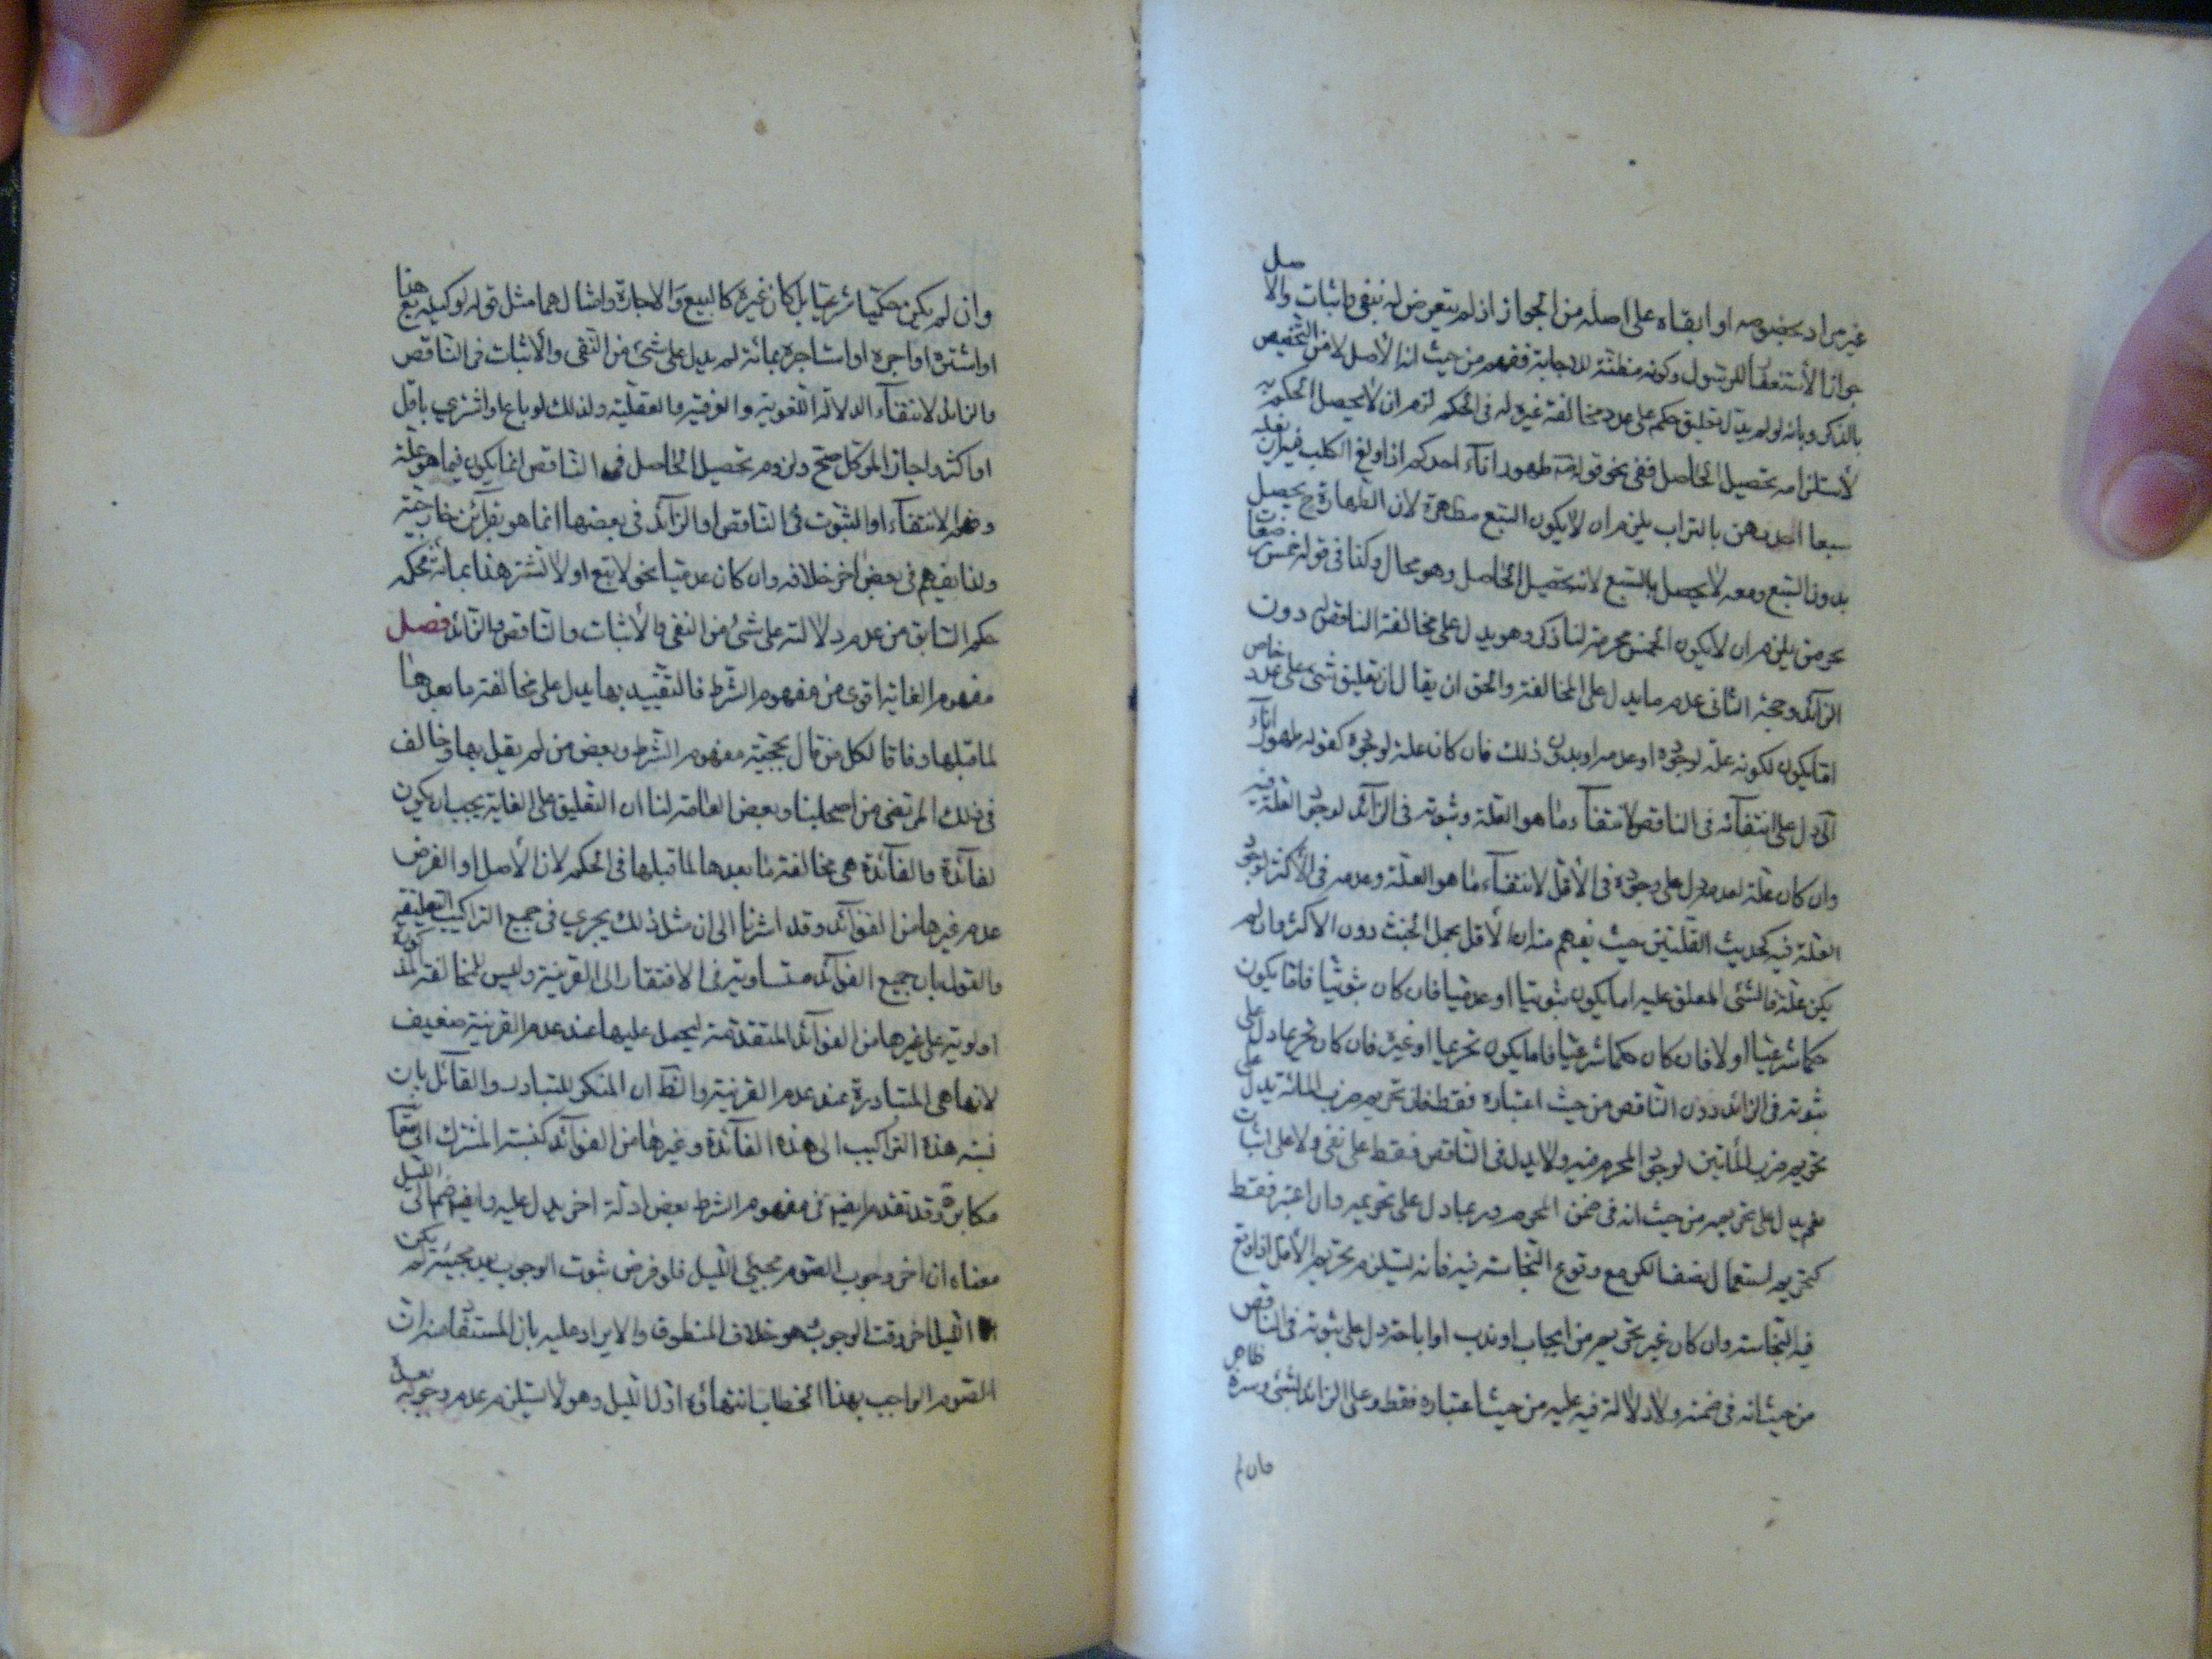 غير مراد بخصوصه او ابقاه على اصله من الجواز اذ لم يتعرض له بنفي واثبات والاصل
جواز الاستغفار للرسول وكونه مظنة للاجابة ففهم من حيث انه الاصل لا من التخصيص
بالذكر وبانه لو لم يدل تعليق حكم على عدد مخالفة غيره له في الحكم لزم ان لا يحصل الحكم به
لاستلزامه تحصيل الحاصل ففي نحو قوله طهور اناء احدكم اذا ولغ الكلب فيه ان يغسله
سبعا احديهن بالتراب يلزم ان لا يكون السبع مطهرة لان الطهارة ح يحصل
بدون السبع ومعه لا يحصل بالسبع لانه تحصيل الحاصل وهو محال وكذا في قوله خمس رضعات
يحرمن يلزم ان لا يكون الخمس محرمة لما ذكر وهو يدل على مخالفة الناقص له دون
الزائد وحجة الثاني عدم ما يدل على المخالفة والحق ان يقال ان تعليق شئ على عدد خاص
اما يكون لكونه علة لوجوده او عدمه او بدون ذلك فان كان علة لوجوده كقوله طهور اناء
الخ دل على انتفائه في الناقص لانتفاء ما هو العلة وثبوته في الزائد لوجود العلة فيه
وان كان علة لعدمه دل على وجوده في الاقل لانتفاء ما هو العلة وعدمه في الاكثر لوجود
العلة فيه كحديث القلتين حيث يفهم منه ان الاقل يحمل الخبث دون الاكثر وان لم
يكن علة فالشئ المعلق عليه اما يكون ثبوتيا او عدميا فان كان ثبوتيا فاما يكون
حكما شرعيا او لا فان كان حكما شرعيا فاما يكون تحريما او غيره فان كان تحريما دل على
ثبوته في الزائد دون الناقص من حيث اعتباره فقط فان تحريم ضرب المائة تدل على
تحريم ضرب المأتين لوجود المحرم فيه ولا يدل في الناقص فقط على نفي ولا على اثبات
نعم يدل على تحريمه من حيث انه في ضمن المحرم وربما دل على تحريمه وان اعتبر فقط
كتحريم استعمال نصف الكر مع وقوع النجاسة فيه فانه يستلزم تحريم الاقل اذا وقع
فيه النجاسة وان كان غير تحريم من ايجاب او ندب او اباحة دل على ثبوته في الناقص
من حيث انه في ضمنه ولا دلالة فيه عليه من حيث اعتباره فقط وعلى الزائد بشئ وسره ظاهر
وان لم
وان لم يكن حكما شرعيا بل كان غيره كالبيع والاجارة وامثالهما مثل قوله لوكيله بع هذا
او اشتره او اجره او استاجره بمائة لم يدل على شئ من النفي والاثبات في الناقص
والزائد لانتفاء الدلالة اللغوية والعرفية والعقلية ولذلك لو باع او اشترى باقل
او اكثر واجاز الموكل صح ولزوم تحصيل الحاصل في الناقص انما يكون فيما هو علة
وفهم الانتفاء او الثبوت في الناقص او الزائد في بعضها انما هو بقرائن خارجية
ولذا يفهم في بعض اخر خلافه وان كان عدميا نحو لا تبع او لا تشتر هذا بمائة فحكمه
حكم السابق من عدم دلالته على شئ من النفي والاثبات والناقص والزائد فصل
مفهوم الغاية اقوى من مفهوم الشرط فالتقييد بها يدل على مخالفة ما بعدها
لما قبلها وفاقا لكل من قال بحجية مفهوم الشرط وبعض من لم يقل بها وخالف
في ذلك المرتضى من اصحابنا وبعض العامة لنا ان التعليق على الغاية يجب ان يكون
لفائدة والفائدة هي مخالفة ما بعدها لما قبلها في الحكم لان الاصل او الفرض
عدم غيرها من الفوائد وقد اشرنا الى ان مثل ذلك يجري في جميع التراكيب التعليقية
والقول بان جميع الفوائد متساوية في الافتقار الى القرينة وليس للمخالفة المذكورة
اولوية على غيرها من الفوائد المتقدمة ليحمل عليها عند عدم القرينة ضعيف
لانها هي المتبادرة عند عدم القرينة والظ ان المنكر للتبادر والقائل بان
نسبة هذه التراكيب الى هذه الفائدة وغيرها من الفوائد كنسبة المشترك الى
مكابرة وقد تقدم ايضا في مفهوم الشرط بعض ادلة اخر يدل عليه وايضا صم الى الليل
معناه ان اخر وجوب الصوم مجيئ الليل فلو فرض ثبوت الوجوب بعد مجيئه لم يكن
الليل اخر وقت الوجوب هو خلاف المنطوق والايراد عليه بان المستفاد منه ان
الصوم الواجب بهذا الخطاب انتهاؤه اول الليل وهو لا يستلزم عدم وجوبه بعده